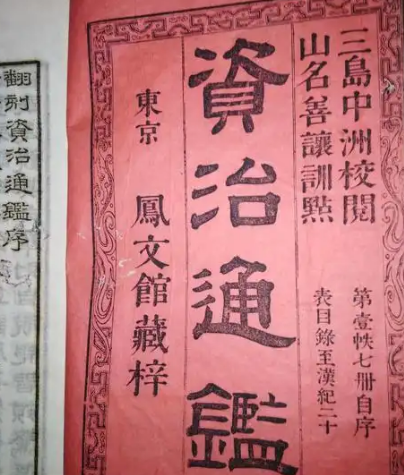 三島中洲校閱
第壹帙七冊自序
山名善讓訓點
表目錄至漢紀二十
資治通鑑
東京 鳳文館藏梓
翻刻資治通鑑序